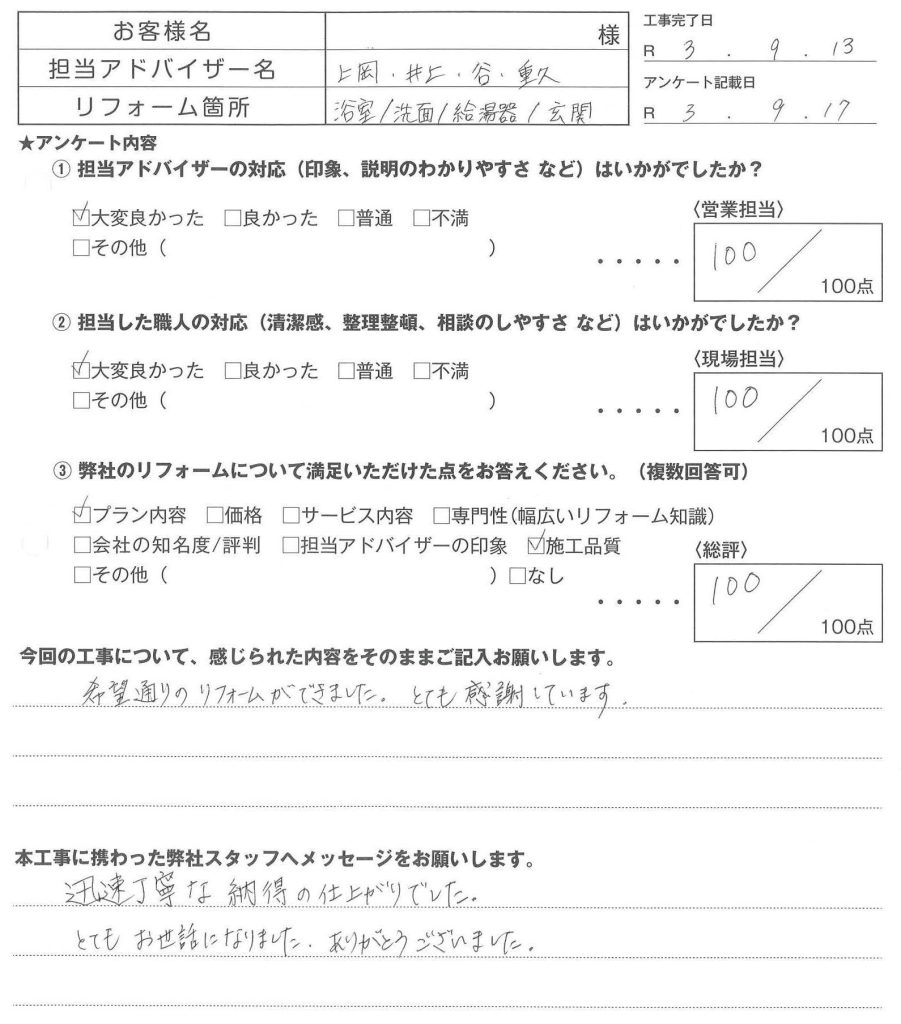 お客様名 様
工事完了日
R 3 . 9 . 13
担当アドバイザー名 上岡・井上・谷・重久
アンケート記載日
R 3 . 9 . 17
リフォーム箇所 浴室/洗面/給湯器/玄関
★アンケート内容
① 担当アドバイザーの対応（印象、説明のわかりやすさ など）はいかがでしたか？
☑大変良かった □良かった □普通 □不満
〈営業担当〉
□その他（ ）
・・・・・ 100／100点
② 担当した職人の対応（清潔感、整理整頓、相談のしやすさ など）はいかがでしたか？
☑大変良かった □良かった □普通 □不満
〈現場担当〉
□その他（ ）
・・・・・ 100／100点
③ 弊社のリフォームについて満足いただけた点をお答えください。（複数回答可）
☑プラン内容 □価格 □サービス内容 □専門性(幅広いリフォーム知識)
□会社の知名度/評判 □担当アドバイザーの印象 ☑施工品質
〈総評〉
□その他（ ）□なし
・・・・・ 100／100点
今回の工事について、感じられた内容をそのままご記入お願いします。
希望通りのリフォームができました。とても感謝しています。
本工事に携わった弊社スタッフへメッセージをお願いします。
迅速丁寧な納得の仕上がりでした。
とてもお世話になりました。ありがとうございました。